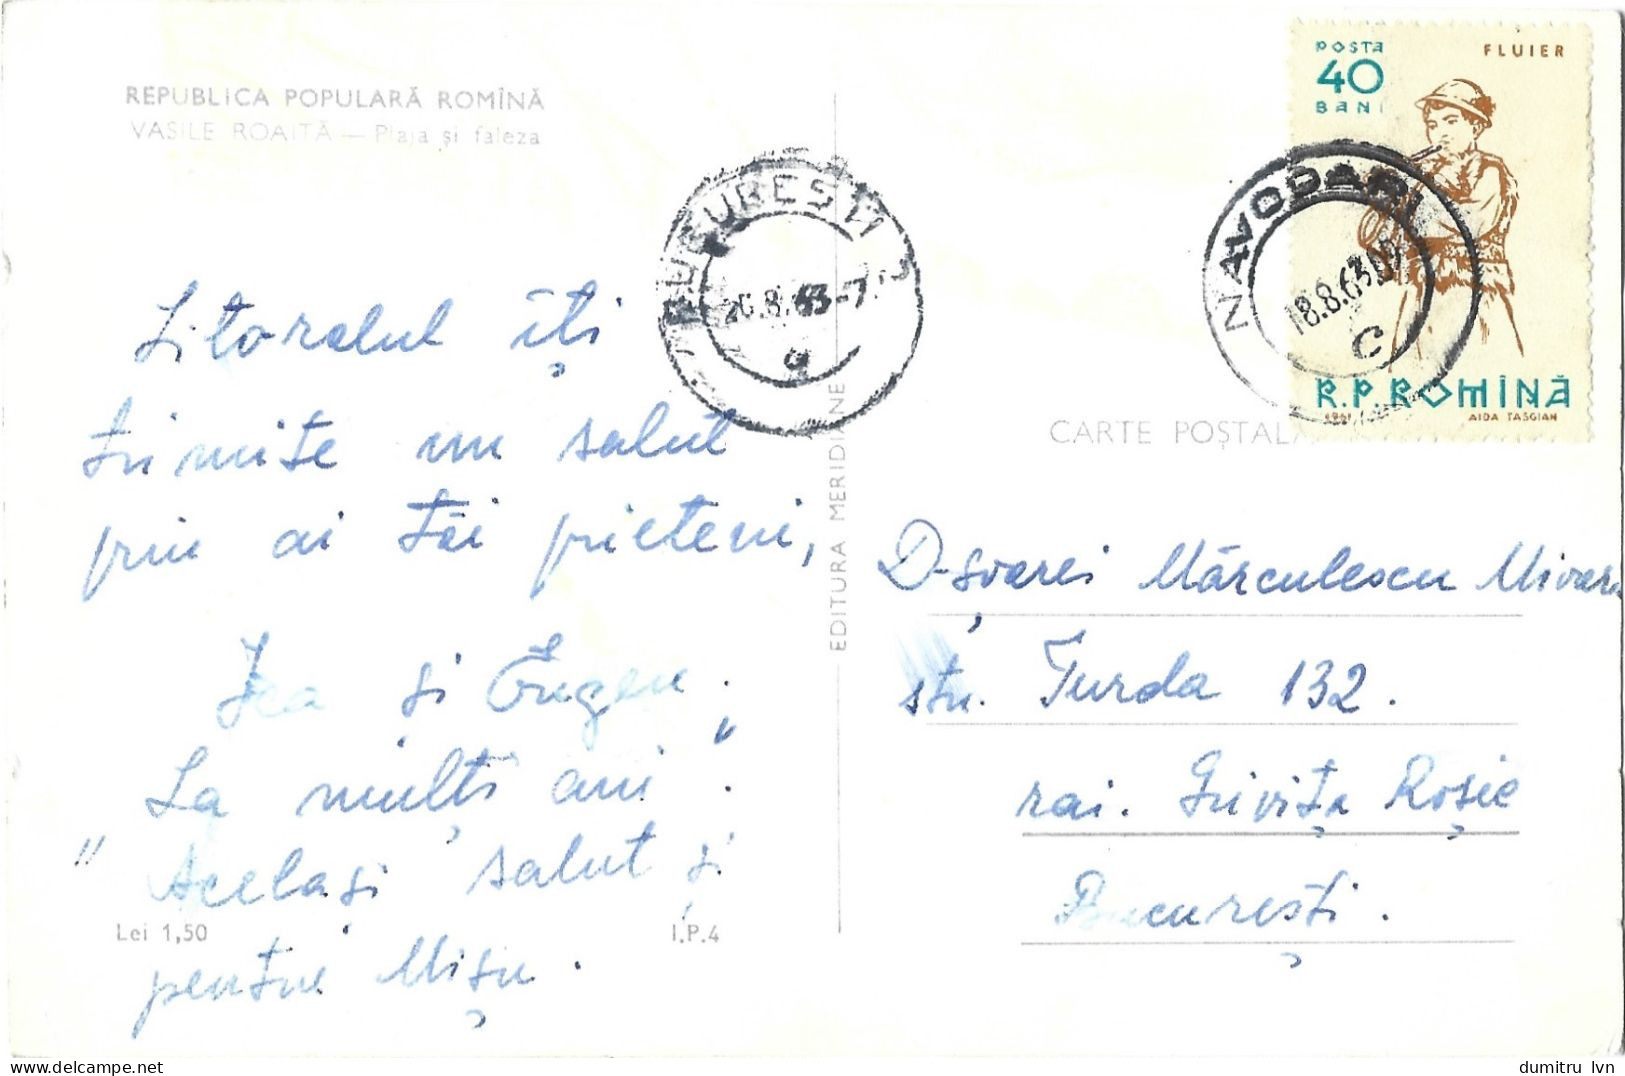 REPUBLICA POPULARĂ ROMÎNĂ
VASILE ROAITĂ — Plaja și faleza
Litoralul îți
trimite un salut
prin ai tăi prieteni,
și Eugen.
"La mulți ani".
Același salut și
pentru Mișu.
Lei 1,50
I.P.4
EDITURA MERIDIANE
BUCUREȘTI
20.8.63-7
NAVODARI
18.8.63
C
POSTA
40
BANI
FLUIER
R.P.ROMÎNĂ
1961
AIDA TASGIAN
CARTE POȘTALĂ
D-șoarei Mărculescu
str. Turda 132.
rai. Grivița Roșie
București.
dumitru lvn